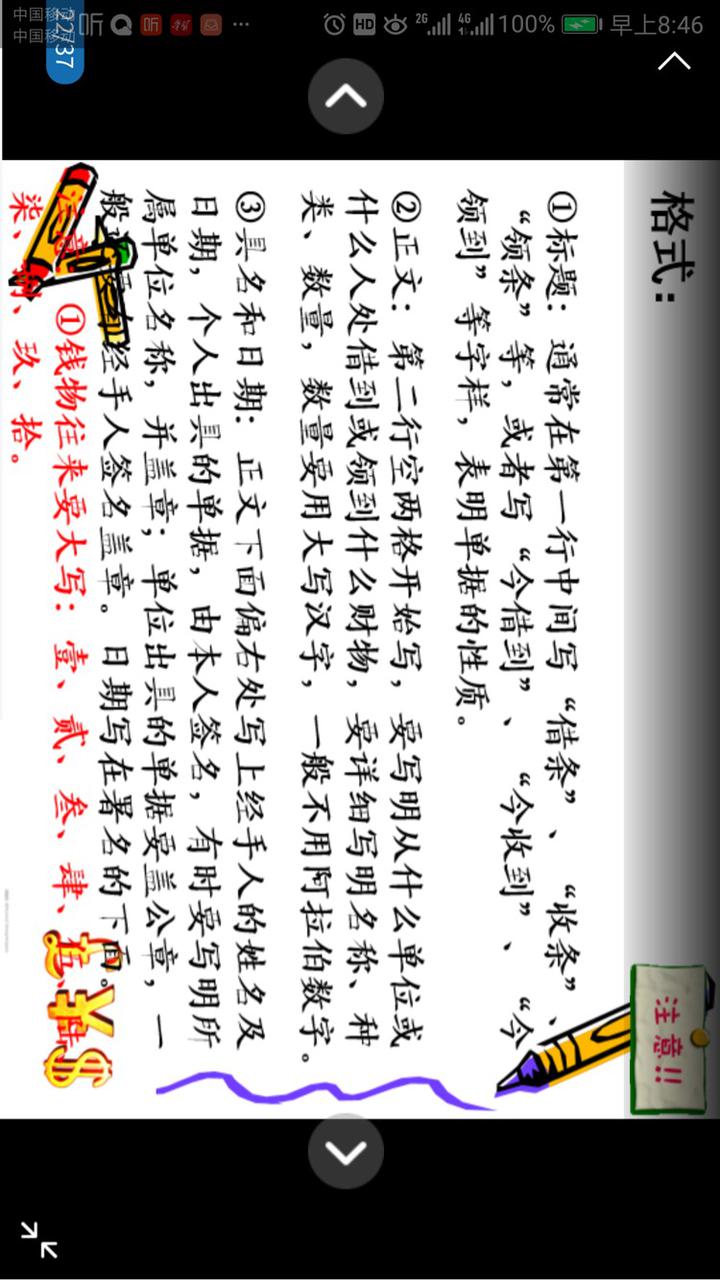 中国移动
中国移动
22:37
听
听
HD
2G
4G
100%
早上8:46
格式：
注意!!
①标题：通常在第一行中间写“借条”、“收条”、
“领条”等，或者写“今借到”、“今收到”、“今
领到”等字样，表明单据的性质。
②正文：第二行空两格开始写，要写明从什么单位或
什么人处借到或领到什么财物，要详细写明名称、种
类、数量，数量要用大写汉字，一般不用阿拉伯数字。
③具名和日期：正文下面偏右处写上经手人的姓名及
日期，个人出具的单据，由本人签名，有时要写明所
属单位名称，并盖章；单位出具的单据要盖公章，一
般 经手人签名盖章。日期写在署名的下面。
注意 ①钱物往来要大写：壹、贰、叁、肆、伍、陆
柒、捌、玖、拾。